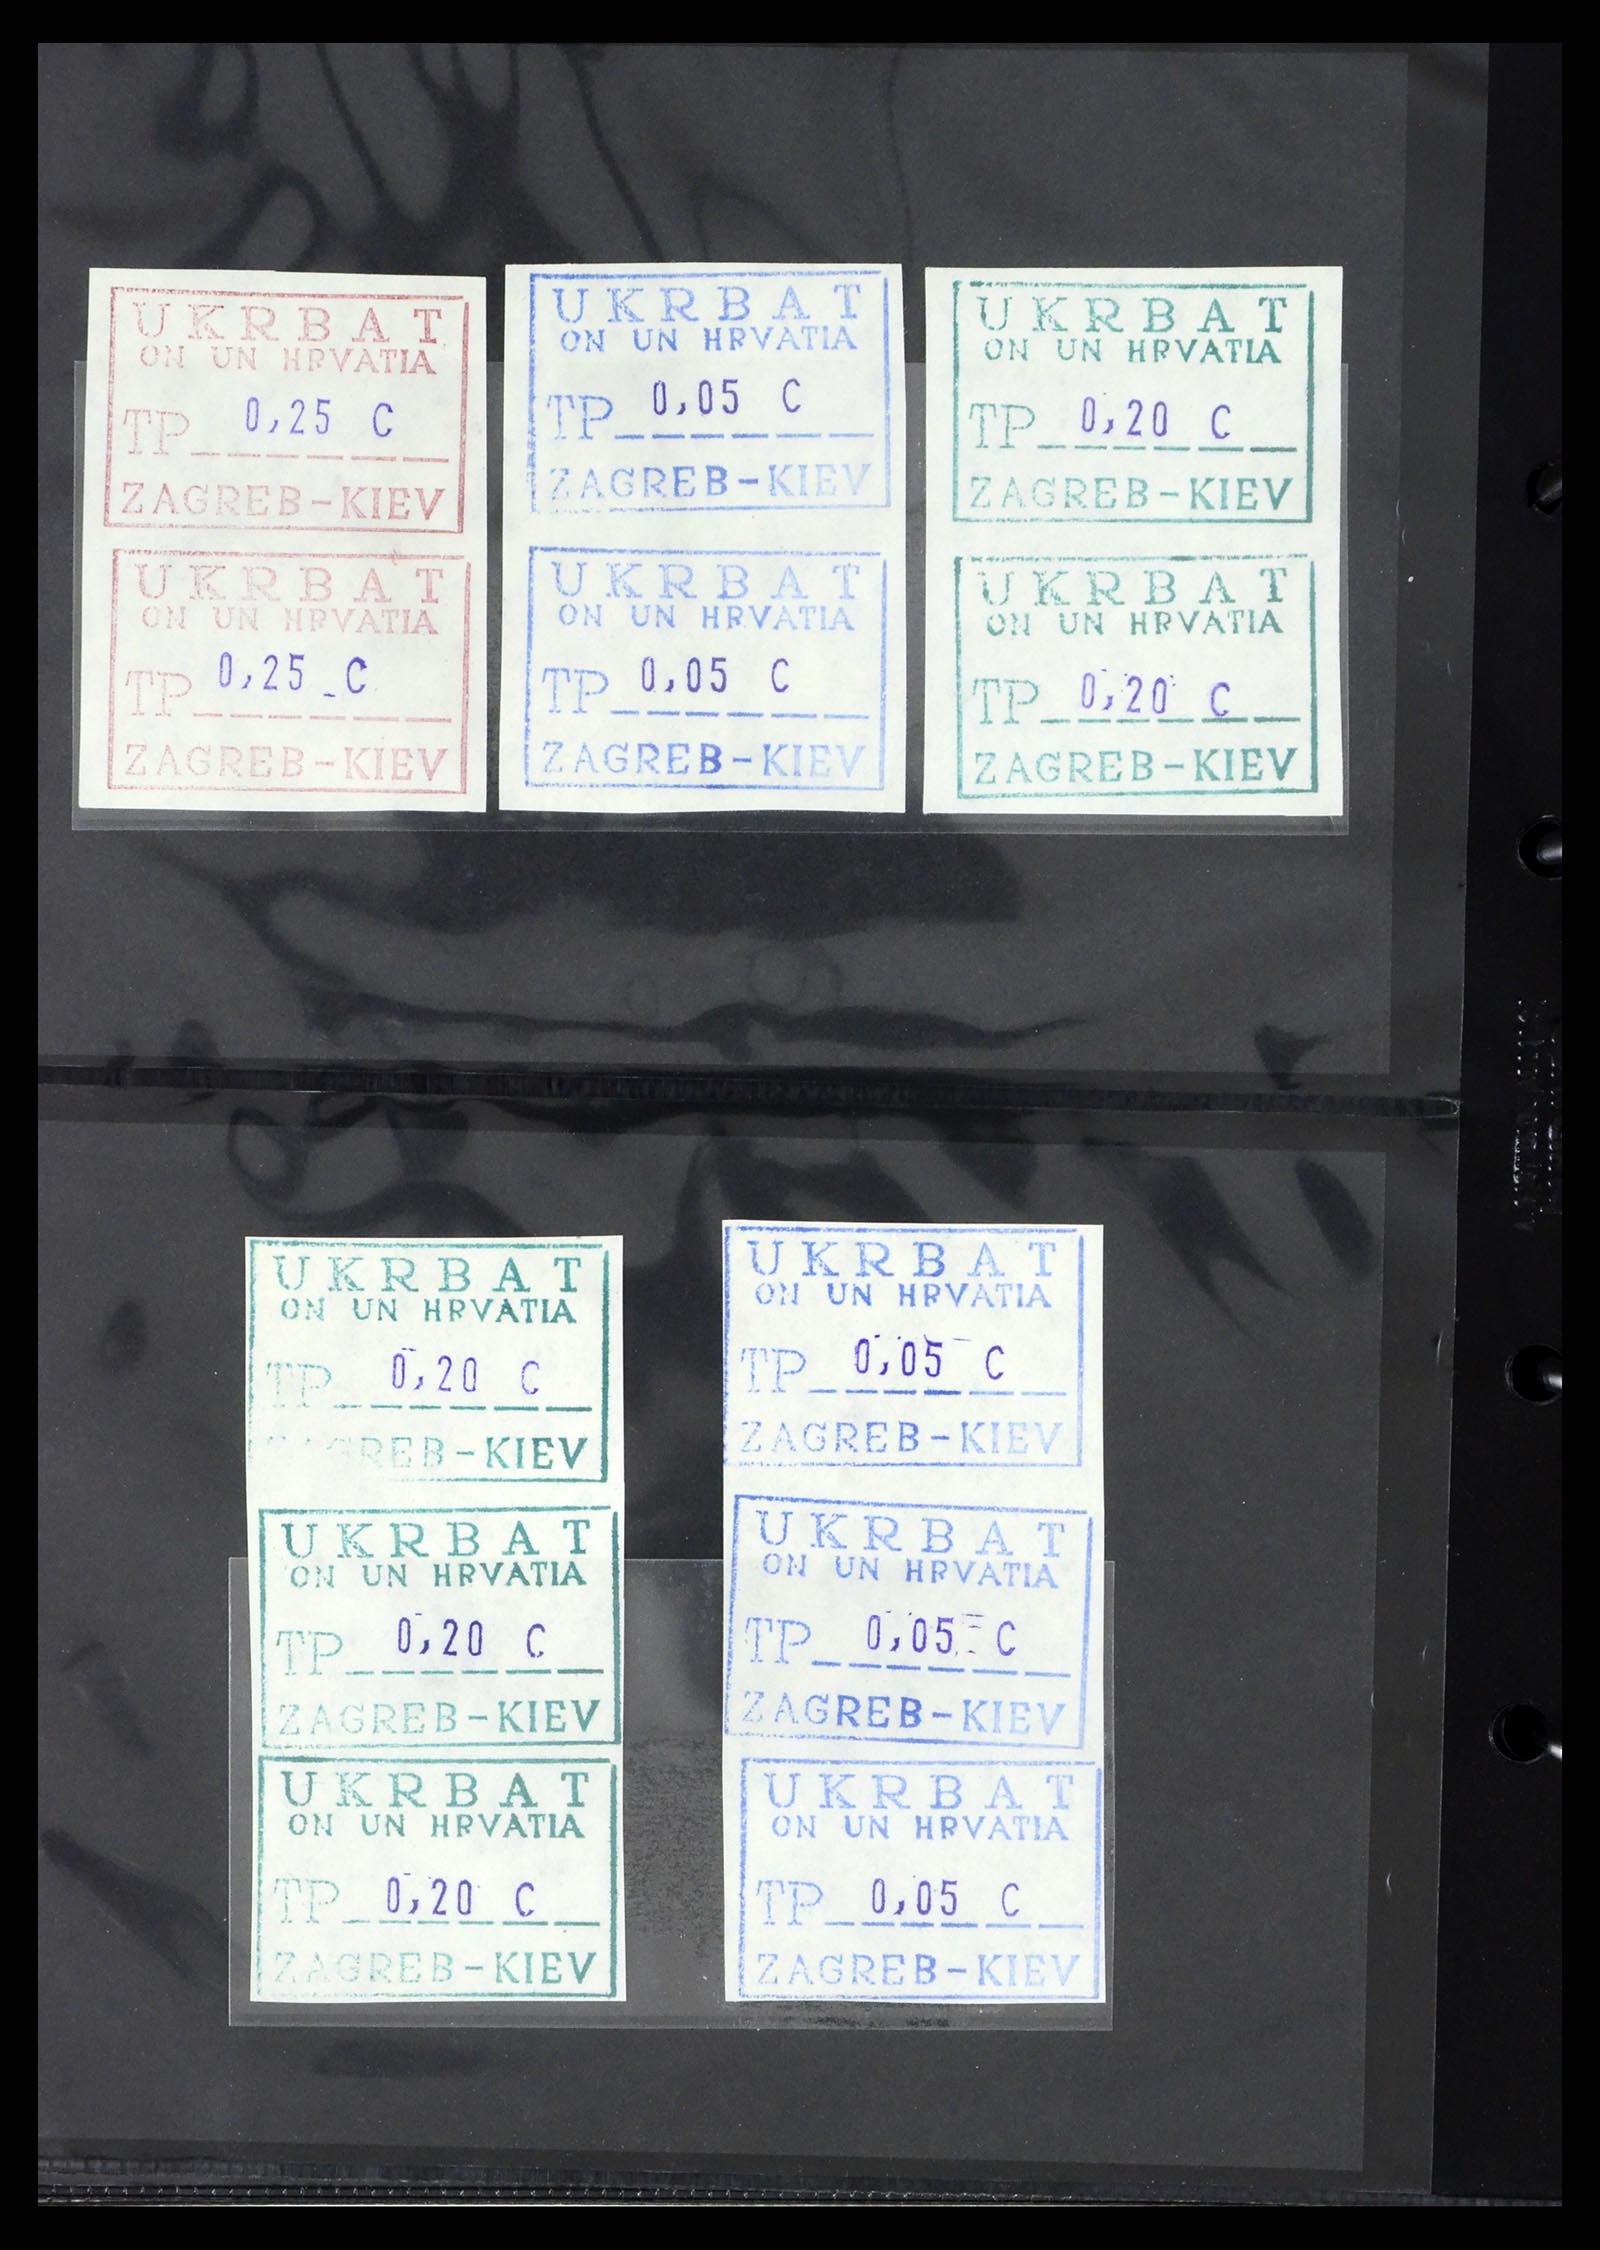 UKRBAT
ON UN HRVATIA
TP 0,25 C
ZAGREB-KIEV
UKRBAT
ON UN HRVATIA
TP 0,25 C
ZAGREB-KIEV
UKRBAT
ON UN HRVATIA
TP 0,05 C
ZAGREB-KIEV
UKRBAT
ON UN HRVATIA
TP 0,05 C
ZAGREB-KIEV
UKRBAT
ON UN HRVATIA
TP 0,20 C
ZAGREB-KIEV
UKRBAT
ON UN HRVATIA
TP 0,20 C
ZAGREB-KIEV
UKRBAT
ON UN HRVATIA
TP 0,20 C
ZAGREB-KIEV
UKRBAT
ON UN HRVATIA
TP 0,20 C
ZAGREB-KIEV
UKRBAT
ON UN HRVATIA
TP 0,20 C
ZAGREB-KIEV
UKRBAT
ON UN HRVATIA
TP 0,05 C
ZAGREB-KIEV
UKRBAT
ON UN HRVATIA
TP 0,05 C
ZAGREB-KIEV
UKRBAT
ON UN HRVATIA
TP 0,05 C
ZAGREB-KIEV